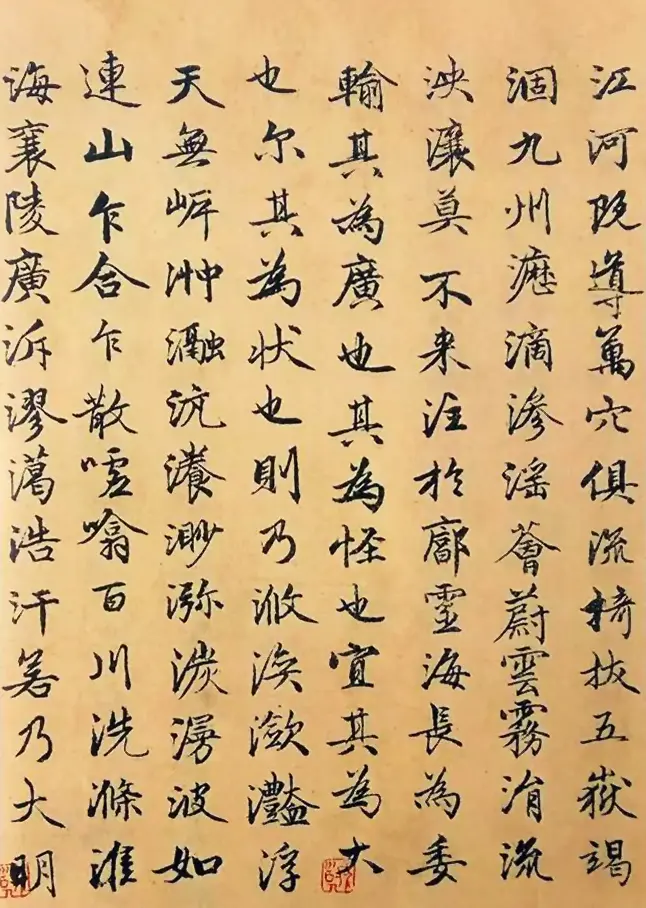 江河既導萬穴俱流掎拔五嶽竭
涸九州瀝滴滲淫薈蔚雲霧涓流
泱瀼莫不来注於廓靈海長為委
輸其為廣也其為怪也宜其為大
也尔其為狀也則乃浟湙瀲灩浮
天無岸沖瀜沆瀁渺瀰湠漫波如
連山乍合乍散噓噏百川洗滌淮
海襄陵廣泝漻㵧浩汗若乃大明